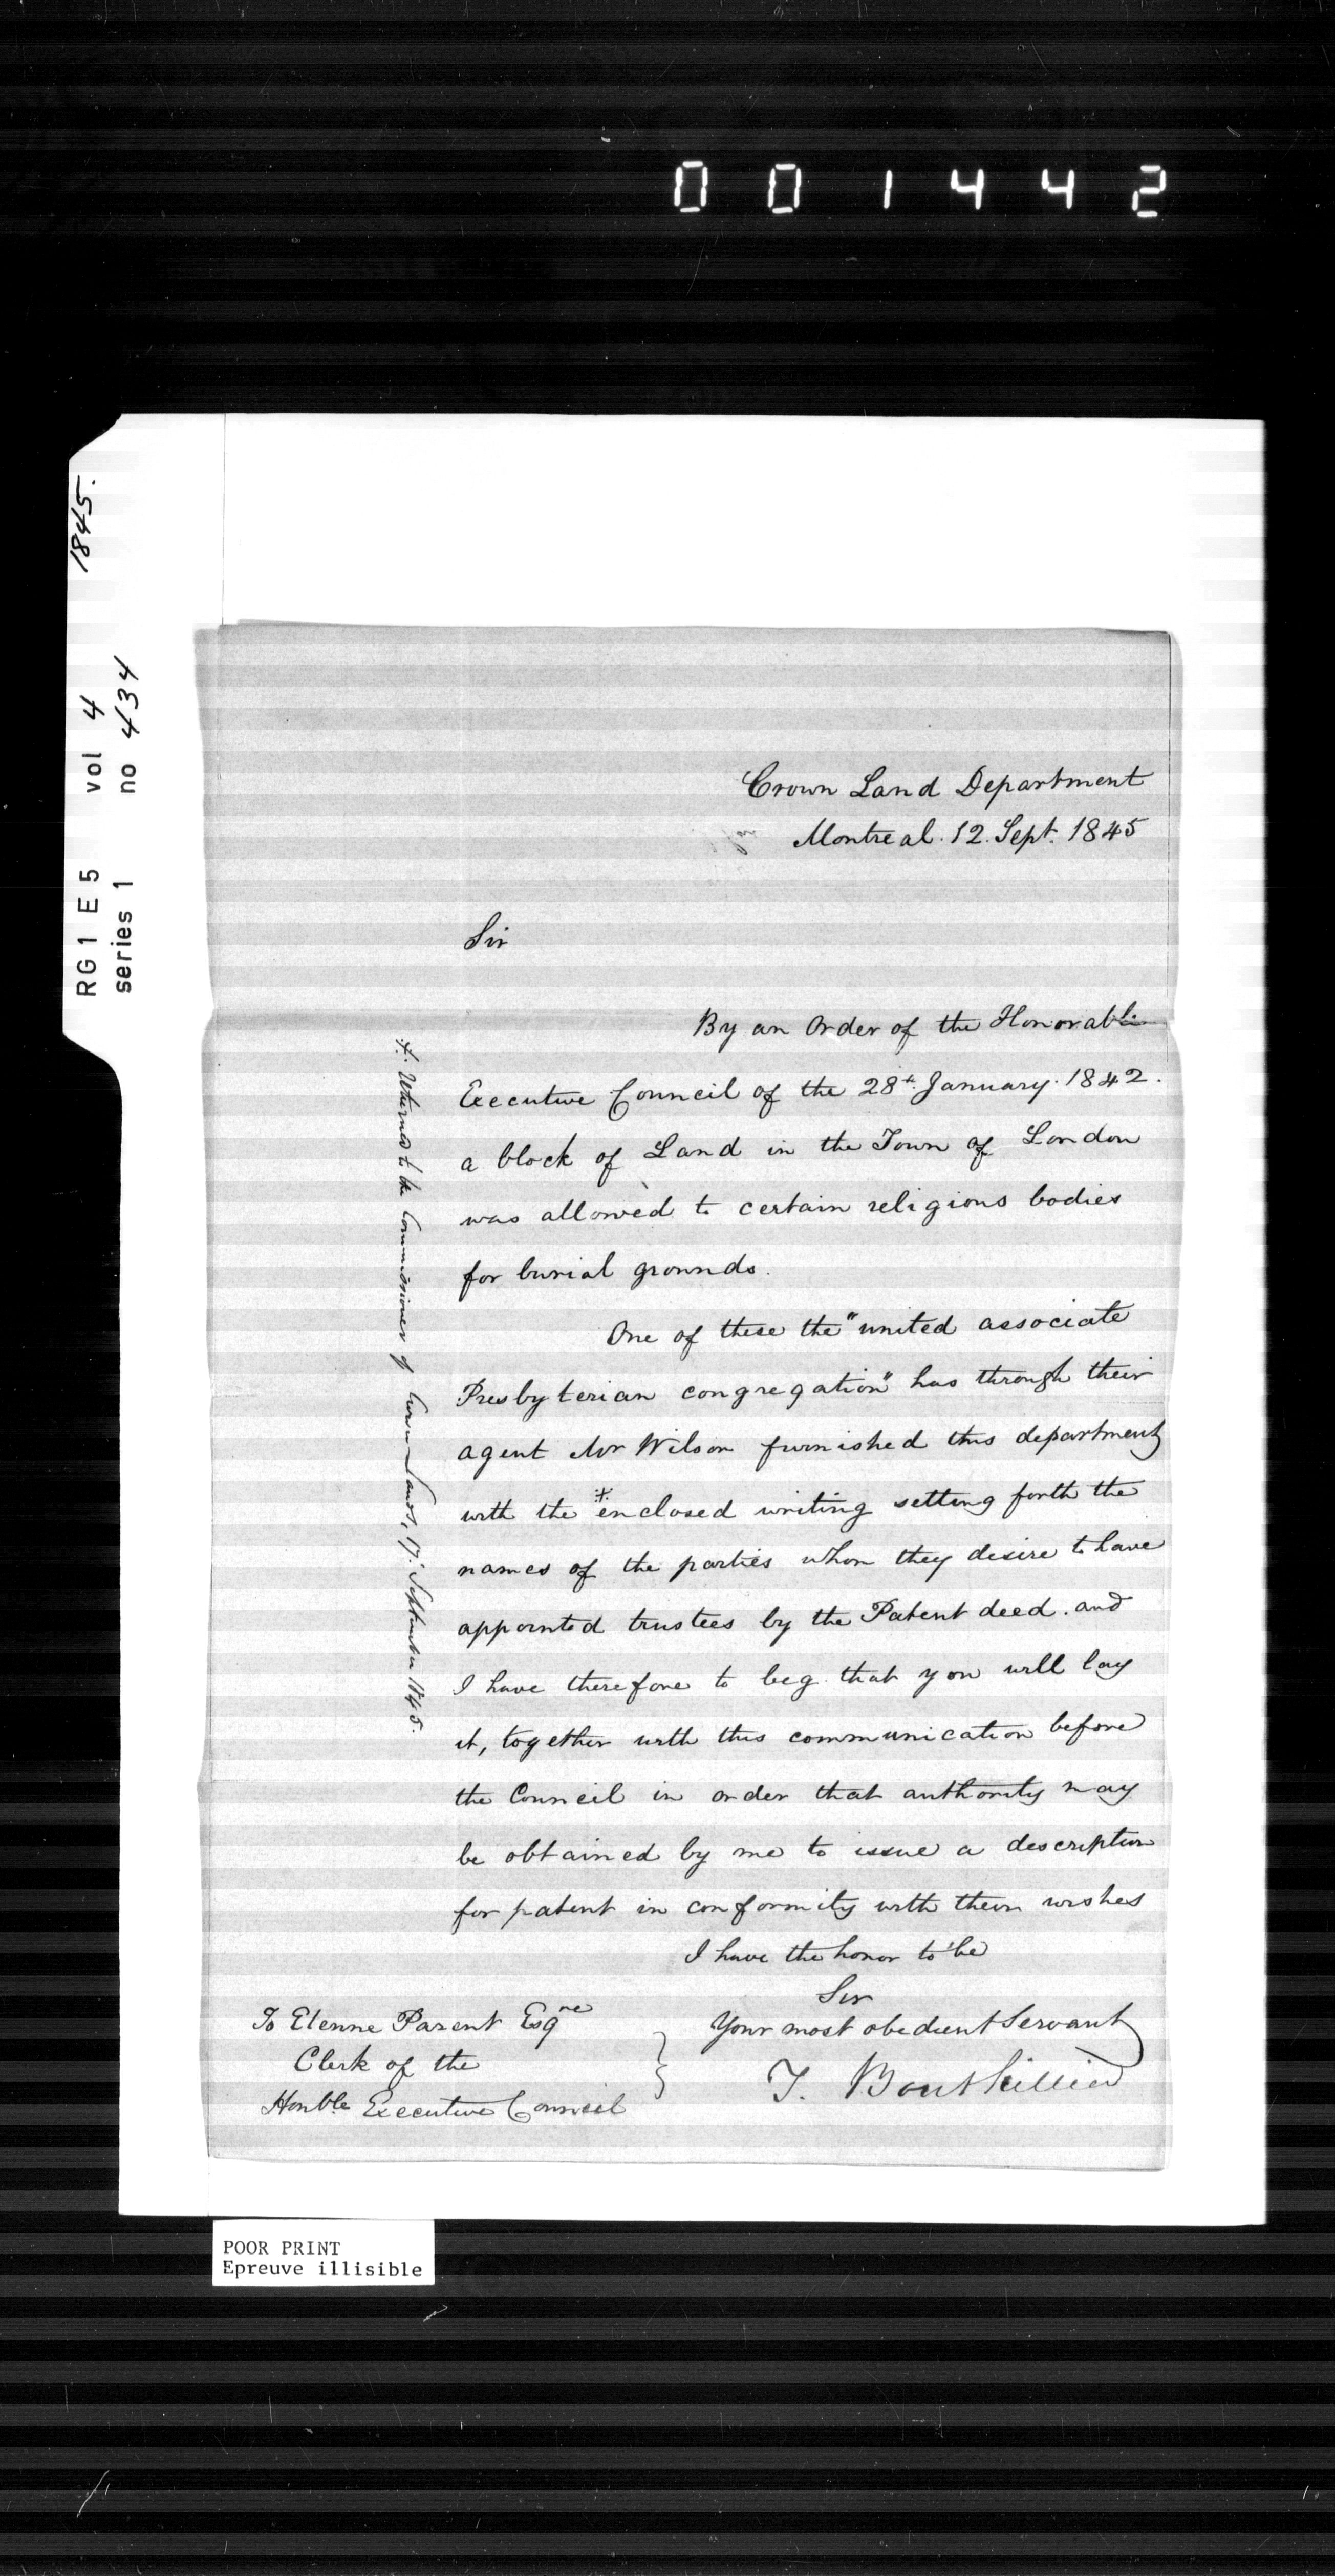 001442
1845.
RG1 E5 vol 4
series 1 no 434
Crown Land Department
Montreal. 12. Sept. 1845
Sir
By an Order of the Honorable
Executive Council of the 28th. January. 1842.
a block of Land in the Town of London
was allowed to certain religious bodies
for burial grounds.
One of these the "united associate
Presbyterian congregation" has through their
agent Mr Wilson furnished this department
with the * enclosed writing setting forth the
names of the parties whom they desire to have
appointed trustees by the Patent deed. and
I have therefore to beg that you will lay
it, together with this communication before
the Council in order that authority may
be obtained by me to issue a description
for patent in conformity with their wishes
I have the honor to be
Sir
Your most obedient Servant
T. Bouthillier
To Etenne Parent Esqre
Clerk of the
Honble Executive Council
* Returned to the Commissioner of Crown Lands, 17: September 1845.
POOR PRINT
Epreuve illisible